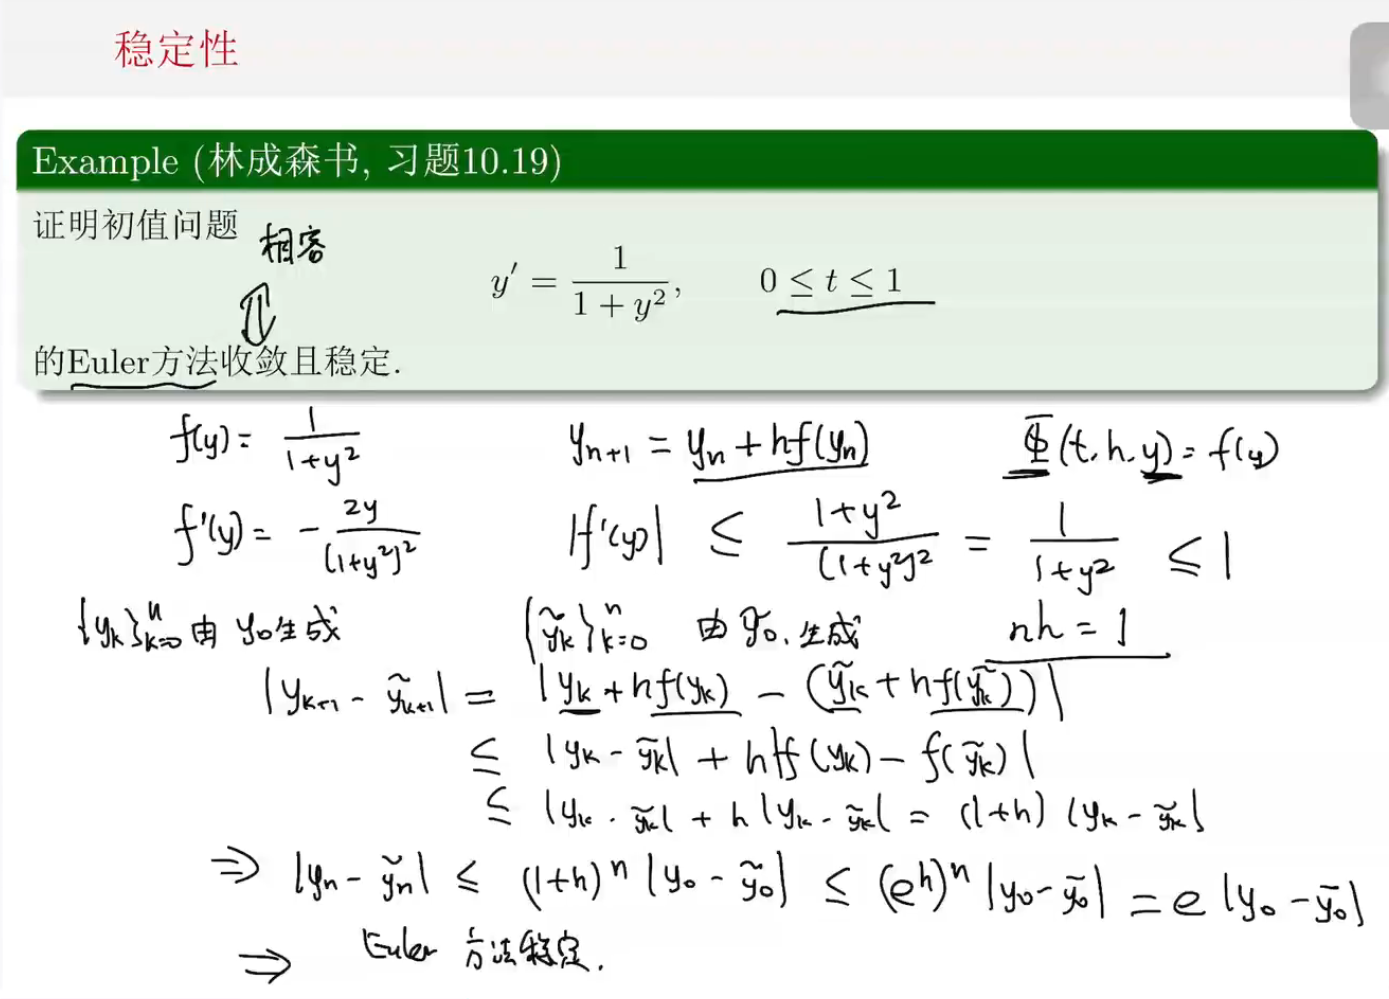 稳定性
Example (林成森书, 习题10.19)
证明初值问题
相容
y′ = 1/(1 + y²), 0 ≤ t ≤ 1
⇕
的Euler方法收敛且稳定.
f(y) = 1/(1+y²) y_{n+1} = y_n + hf(y_n) Φ(t, h, y) = f(y)
f'(y) = - 2y/(1+y²)² |f'(y)| ≤ (1+y²)/(1+y²)² = 1/(1+y²) ≤ 1
{y_k}ⁿ_{k=0} 由 y₀ 生成 {ỹ_k}ⁿ_{k=0} 由 ỹ₀. 生成 nh = 1
|y_{k+1} - ỹ_{k+1}| = |y_k + hf(y_k) - (ỹ_k + hf(ỹ_k))|
≤ |y_k - ỹ_k| + h|f(y_k) - f(ỹ_k)|
≤ |y_k - ỹ_k| + h|y_k - ỹ_k| = (1+h) |y_k - ỹ_k|
⇒ |y_n - ỹ_n| ≤ (1+h)ⁿ |y₀ - ỹ₀| ≤ (e^h)ⁿ |y₀ - ỹ₀| = e |y₀ - ỹ₀|
⇒ Euler 方法稳定.